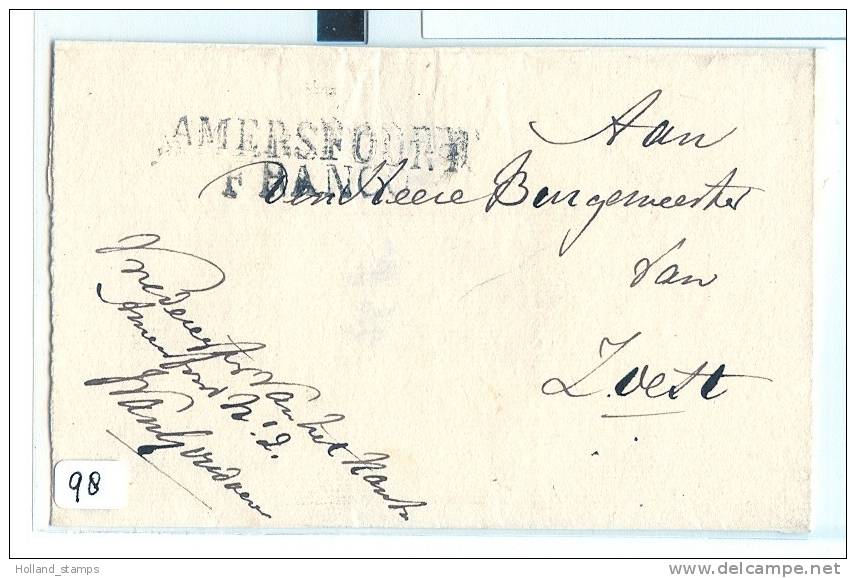 AMERSFOORT
FRANCO
Aan
den Heere Burgemeester
van
Zoest
Vrederegter van het Kanton
Amersfoort N.º 2.
98
Holland_stamps
www.delcampe.net